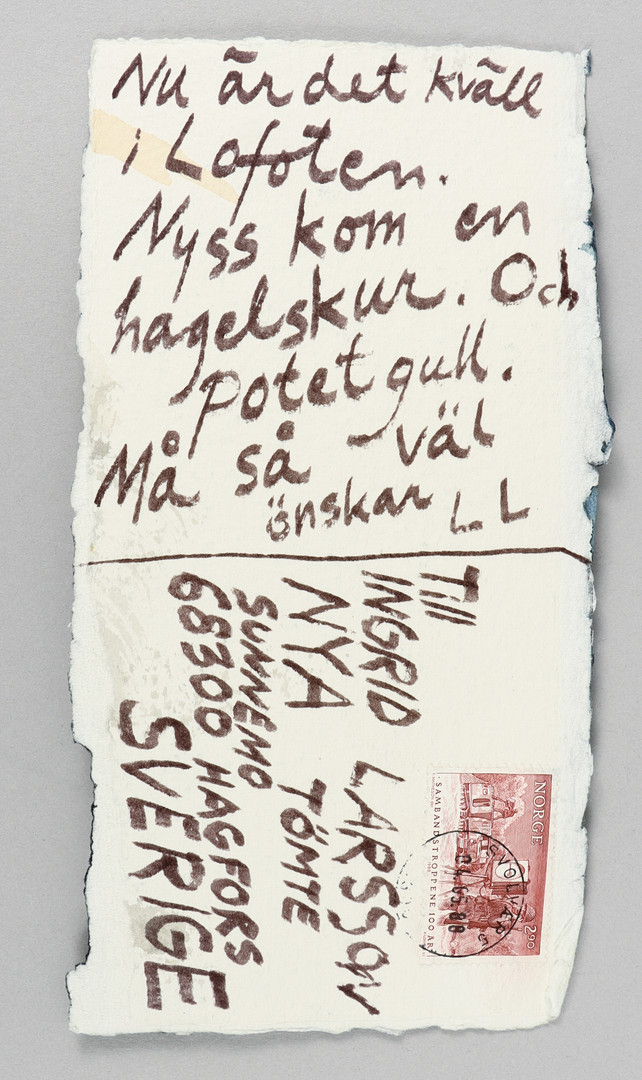 Nu är det kväll
i Lofoten.
Nyss kom en
hagelskur. Och
potetgull.
Må så väl
önskar LL
Till
INGRID LARSSON
NYA TÖMTE
SUNNEMO
68300 HAGFORS
SVERIGE
NORGE
2.90
SAMBANDSTROPPENE 100 ÅR
SVOLVÆR